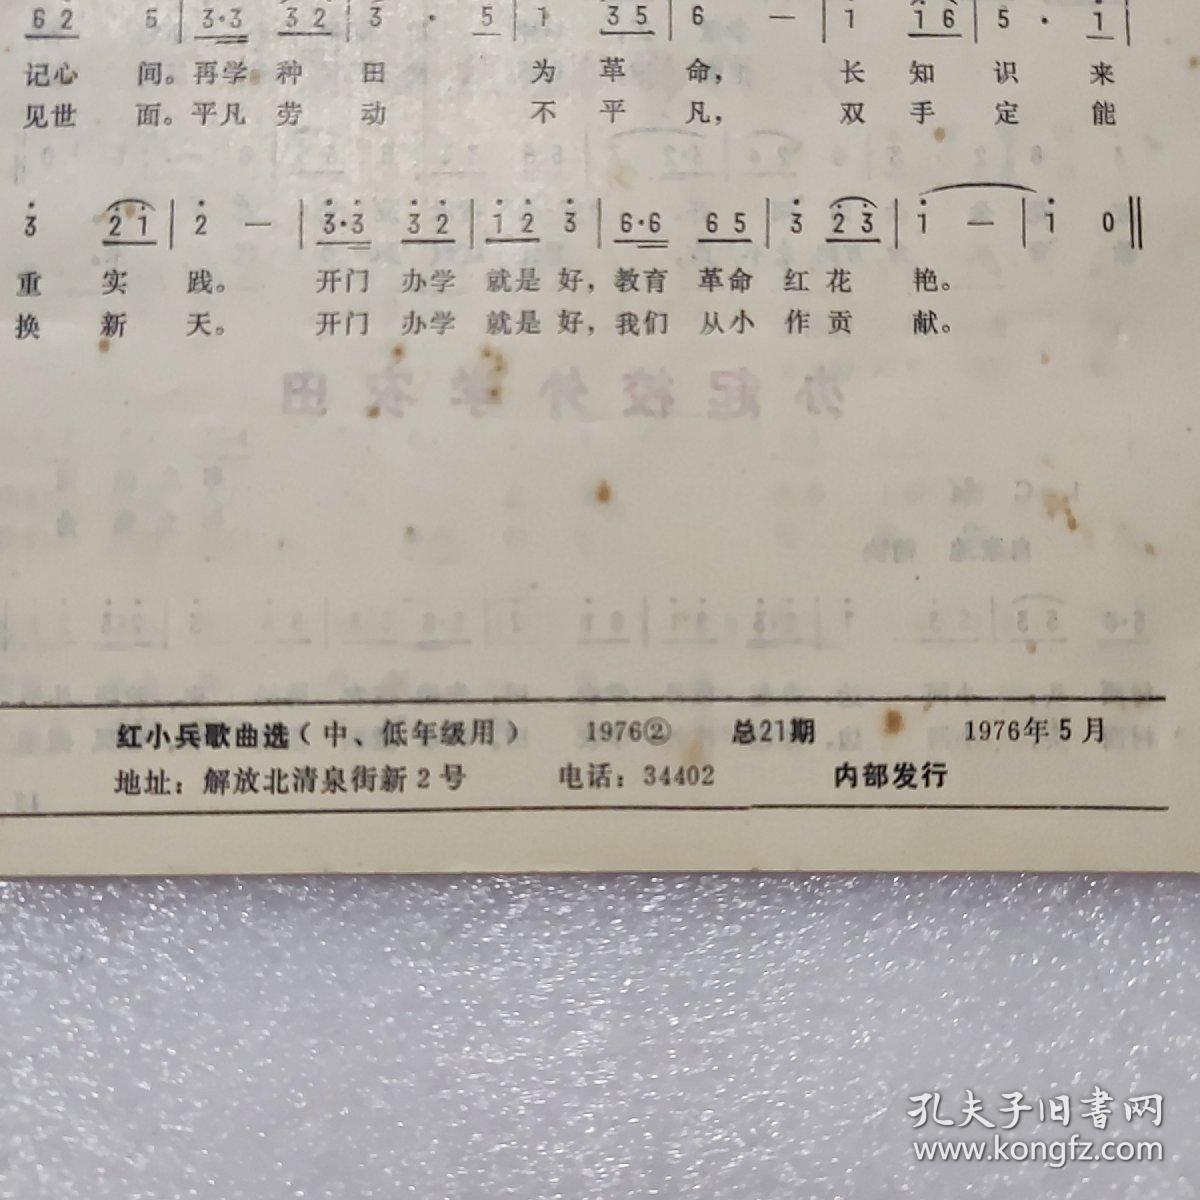 6 2 5 | 3·3 3 2 | 3 · 5 | 1 3 5 | 6 — | 1 1 6 | 5 · 1 |
记心 间。再学 种 田 为 革 命， 长 知 识 来
见世 面。平凡 劳 动 不 平 凡， 双 手 定 能
3 2 1 | 2 — | 3·3 3 2 | 1 2 3 | 6·6 6 5 | 3 2 3 | 1 — | 1 0 ‖
重 实 践。 开门 办学 就是 好，教育 革命 红 花 艳。
换 新 天。 开门 办学 就是 好，我们 从小 作 贡 献。
办起校外学农田
红小兵歌曲选（中、低年级用） 1976② 总21期 1976年5月
地址：解放北清泉街新2号 电话：34402 内部发行
孔夫子旧书网
www.kongfz.com